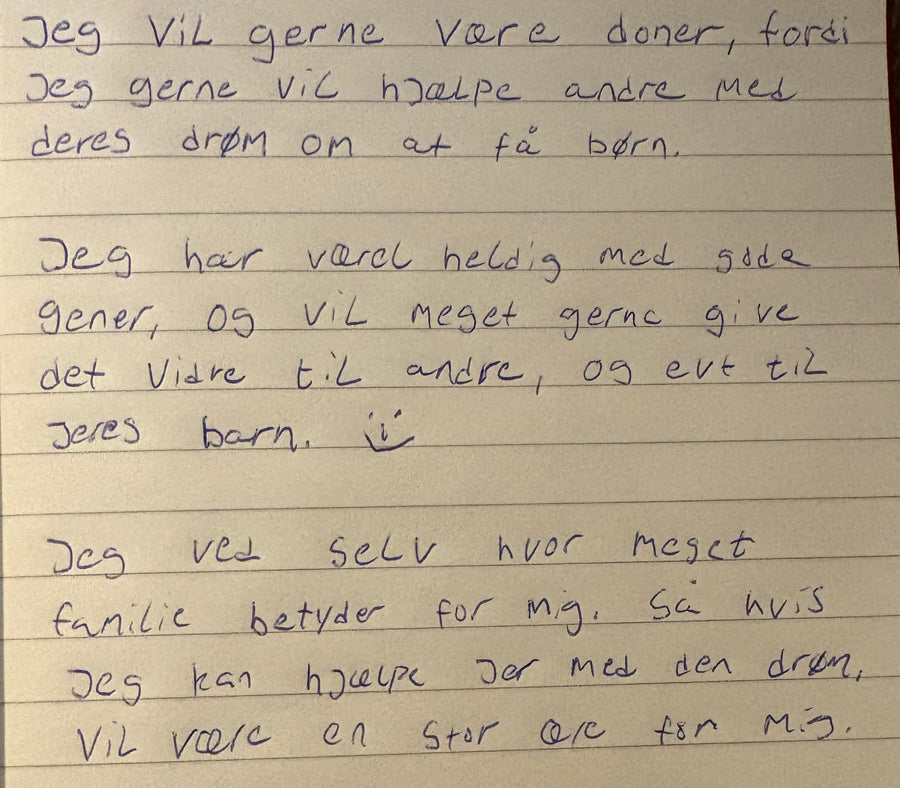 Jeg vil gerne være doner, fordi
Jeg gerne vil hjælpe andre med
deres drøm om at få børn.
Jeg har værd heldig med gode
gener, og vil meget gerne give
det vidre til andre, og evt til
Jeres barn. :)
Jeg ved selv hvor meget
familie betyder for mig. Så hvis
Jeg kan hjælpe Jer med den drøm,
vil være en stor ære for mig.